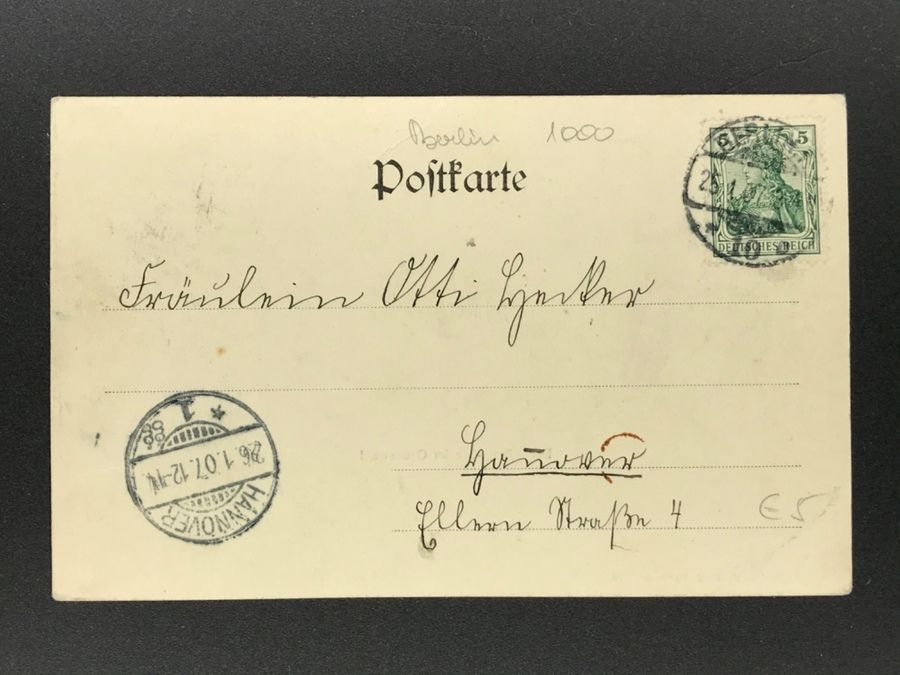 Berlin 1000
Postkarte
5
DEUTSCHES REICH
25.1.
Fräulein Otti Hecker
Hannover
Ellern Straße 4
HANNOVER
26.1.07.12-1N.
* 1
E5